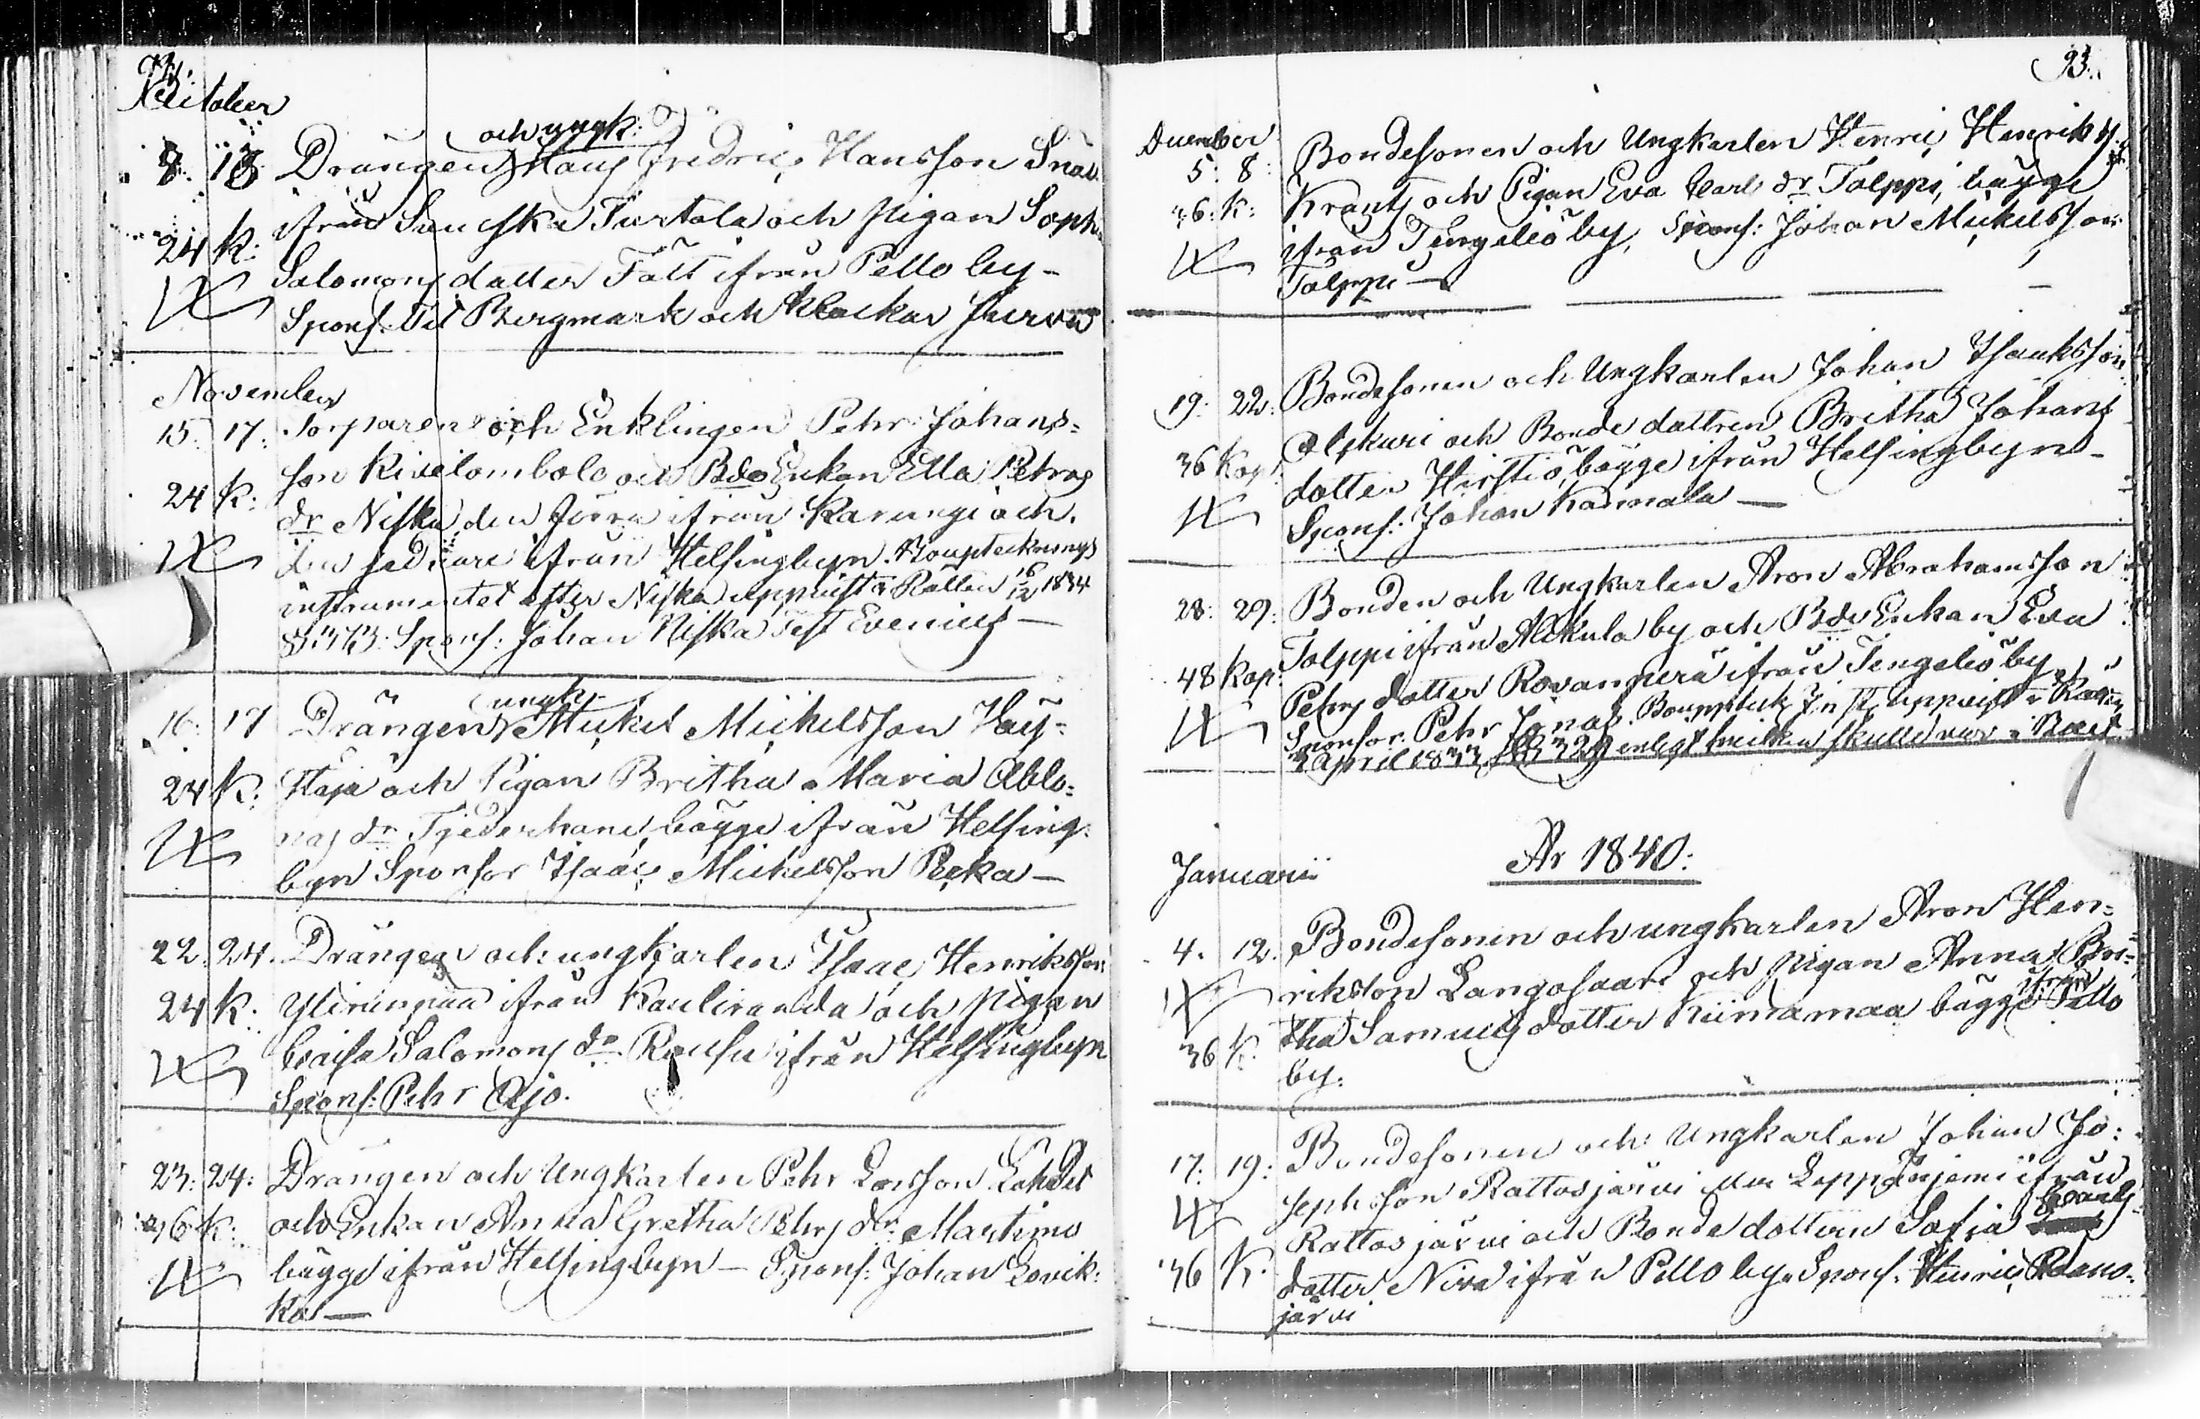 October
och ungk:
8. 13 Drängen Hans Fredric Hansson Snäll
ifrån Svenska Turtola och Pigan Soph.
24 k: Salomons datter Fält ifrån Pello by –
Spons. Bergmark och Klockar
November
15. 17: Torparen och Enklingen Pehr Johans=
son Kivilombolo och Bde Enkan Ella Petrus
24 k: dr Niska den förra ifrån Karungi och
den sednare ifrån Helsingbyn. Boupteknings
instrumentet efter Niska uppvist i Rätten 16/12 1834
§ 373: Spons: Johan Niska Test Evenius –
ungk.
16: 17 Drängen Mickel Mickelsson Häy=
24 k: staja och Pigan Britha Maria Ablo=
nas dr Tjederhane, bägge ifrån Helsing=
byn Sponsor Isaac Mickelsson Pecka –
22. 24. Drängen och ungkarlen Isaac Henriksson
24 k: Ylirinpää ifrån Kauliranda och Pigan
Caisa Salomons dr Rousu ifrån Helsingbyn
Spons: Pehr Ojo.
23: 24: Drängen och Ungkarlen Pehr Larsson Lahdet
36 k: och Enkan Anna Gretha Pehrs dr Martimo
bägge ifrån Helsingbyn – Spons: Johan Lovik=
ka –
93.
December
5: 8: Bondesonen och Ungkarlen Henric Henriks
36: k: Krants och Pigan Eva Carls dr Talppi, bägge
ifrån Tengeliö by, Spons: Johan Mickelsson
Talppi –
19: 22: Bondesonen och Ungkarlen Johan Isaksson
36 Kop: Alskuri och Bonde dattren Britha Johans
dotter Hirstiö, bägge ifrån Helsingbyn –
Spons: Johan Kannala –
28: 29: Bonden och Ungkarlen Aron Abrahamsson
Talppi ifrån Alkula by och Bde Enkan Eva
48 Kop: Pehrs dotter Rovanperä ifrån Tengeliö by
Sponsor Pehr Jonas. Bouppteck: Inst. uppvist i Rätten
April 1833 § 329 enligt hvilken skulle vara i Boet
År 1840:
Januarii
4. 12. Bondesonen och ungkarlen Aron Hen=
riksson Langosaari och Pigan Anna Bri=
ifrån
36 k. tha Samuels dotter Kiinamaa bägge Pello
by.
17. 19: Bondesonen och Ungkarlen Johan Jo:
sephsson Rattosjärvi Lappaniemi ifrån
Rattosjärvi och Bonde dottern Sofia
36 K. dotter Niva ifrån Pello by. Spons. Henric Raano=
järvi